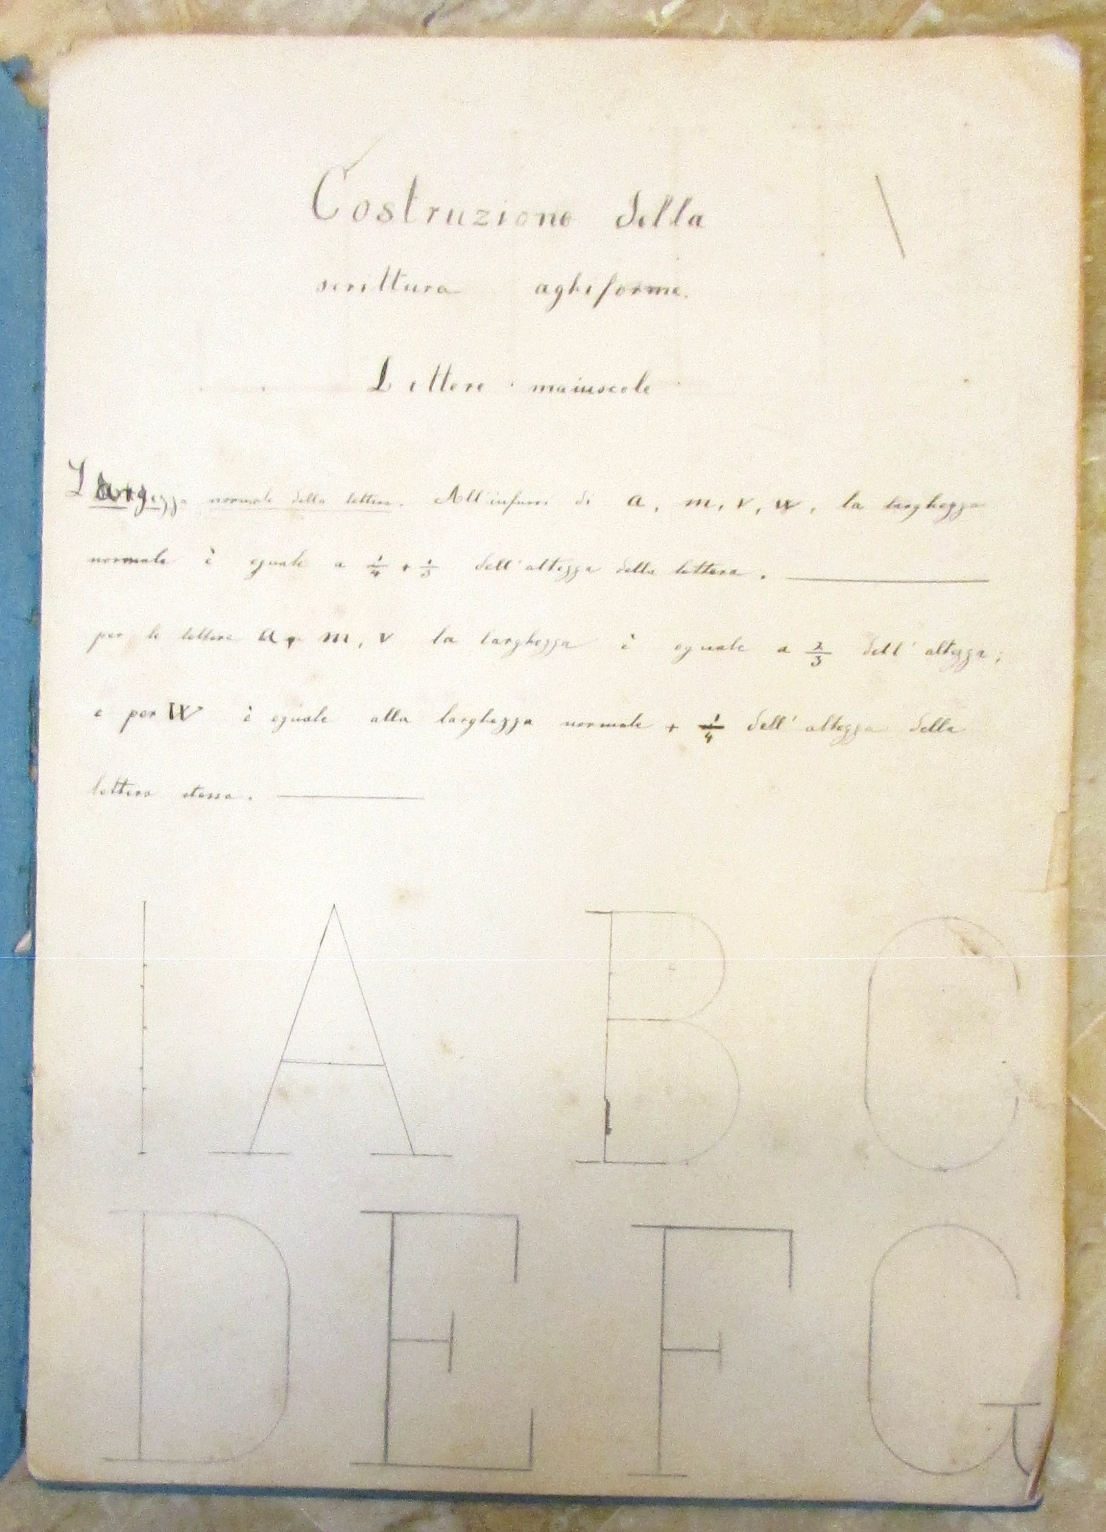 Costruzione della
scrittura aghiforme.
Lettere maiuscole
Larghezza normale della lettera. All'infuori di a, m, v, w, la larghezza
normale è eguale a 1/4 + 1/3 dell'altezza della lettera.
per le lettere a, m, v la larghezza è eguale a 2/3 dell'altezza;
e per W è eguale alla larghezza normale + 1/4 dell'altezza della
lettera stessa.
I A B C
D E F G